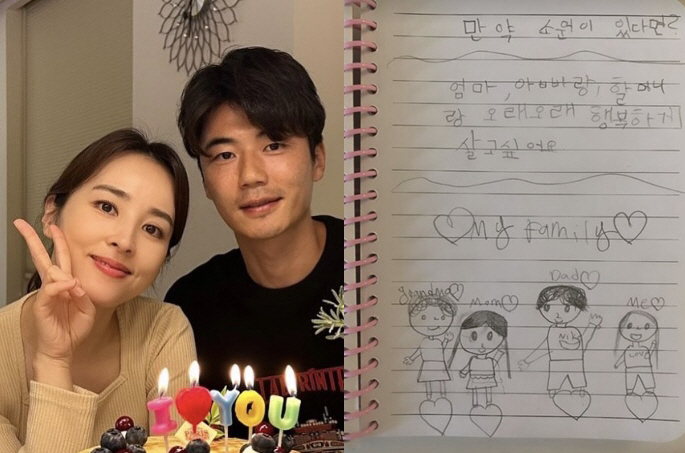 I ♥ YOU
만약 소원이 있다면?
엄마, 아빠랑, 할머니
랑 오래오래 행복하게
살고싶어요
♡My Family♡
Dad♡
grandma♡ Mom♡ Me♡